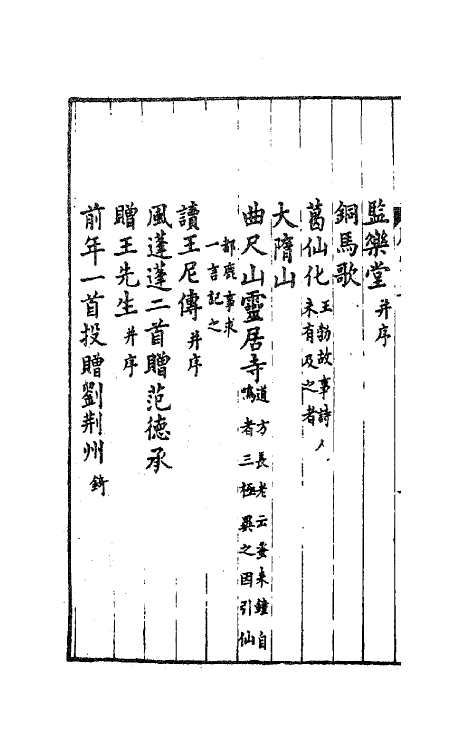 監樂堂并序
銅馬歌
葛仙化王勃故事詩人
未有及之者
大隋山
曲尺山靈居寺道方長老云蚤來鐘自
鳴者三極異之因引仙
都鹿事求
一言記之
讀王尼傳并序
風蓬蓬二首贈范德承
贈王先生并序
前年一首投贈劉荆州錡